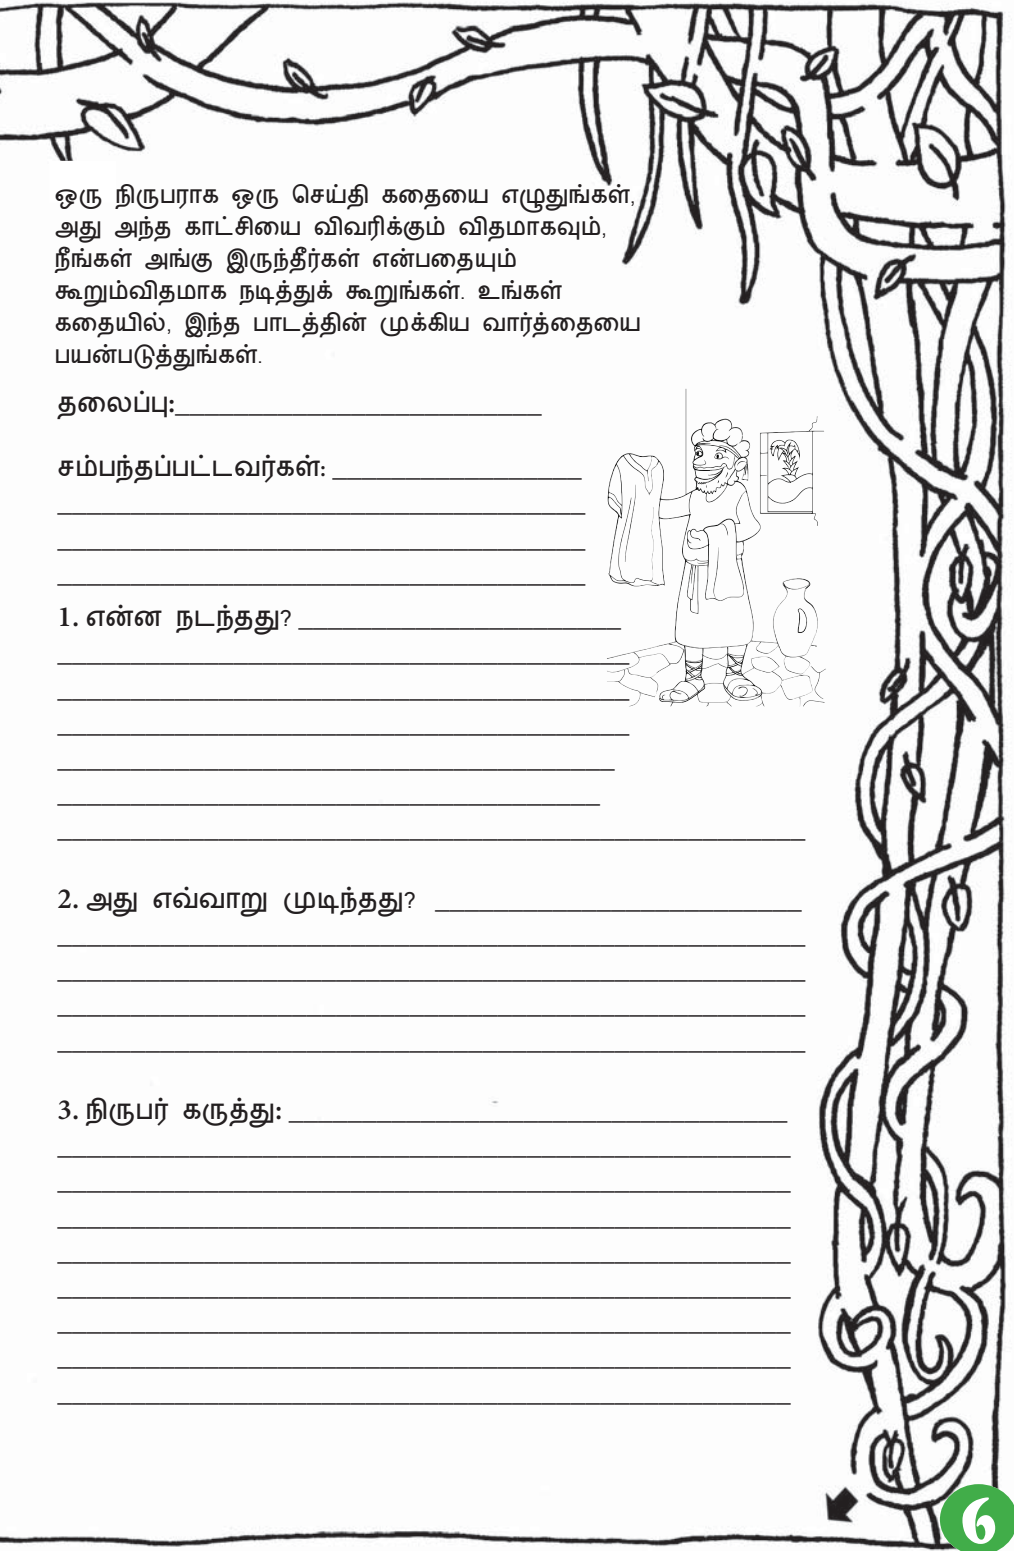 ஒரு நிருபராக ஒரு செய்தி கதையை எழுதுங்கள்,
அது அந்த காட்சியை விவரிக்கும் விதமாகவும்,
நீங்கள் அங்கு இருந்தீர்கள் என்பதையும்
கூறும்விதமாக நடித்துக் கூறுங்கள். உங்கள்
கதையில், இந்த பாடத்தின் முக்கிய வார்த்தையை
பயன்படுத்துங்கள்.
தலைப்பு:
சம்பந்தப்பட்டவர்கள்:
1. என்ன நடந்தது?
2. அது எவ்வாறு முடிந்தது?
3. நிருபர் கருத்து:
6